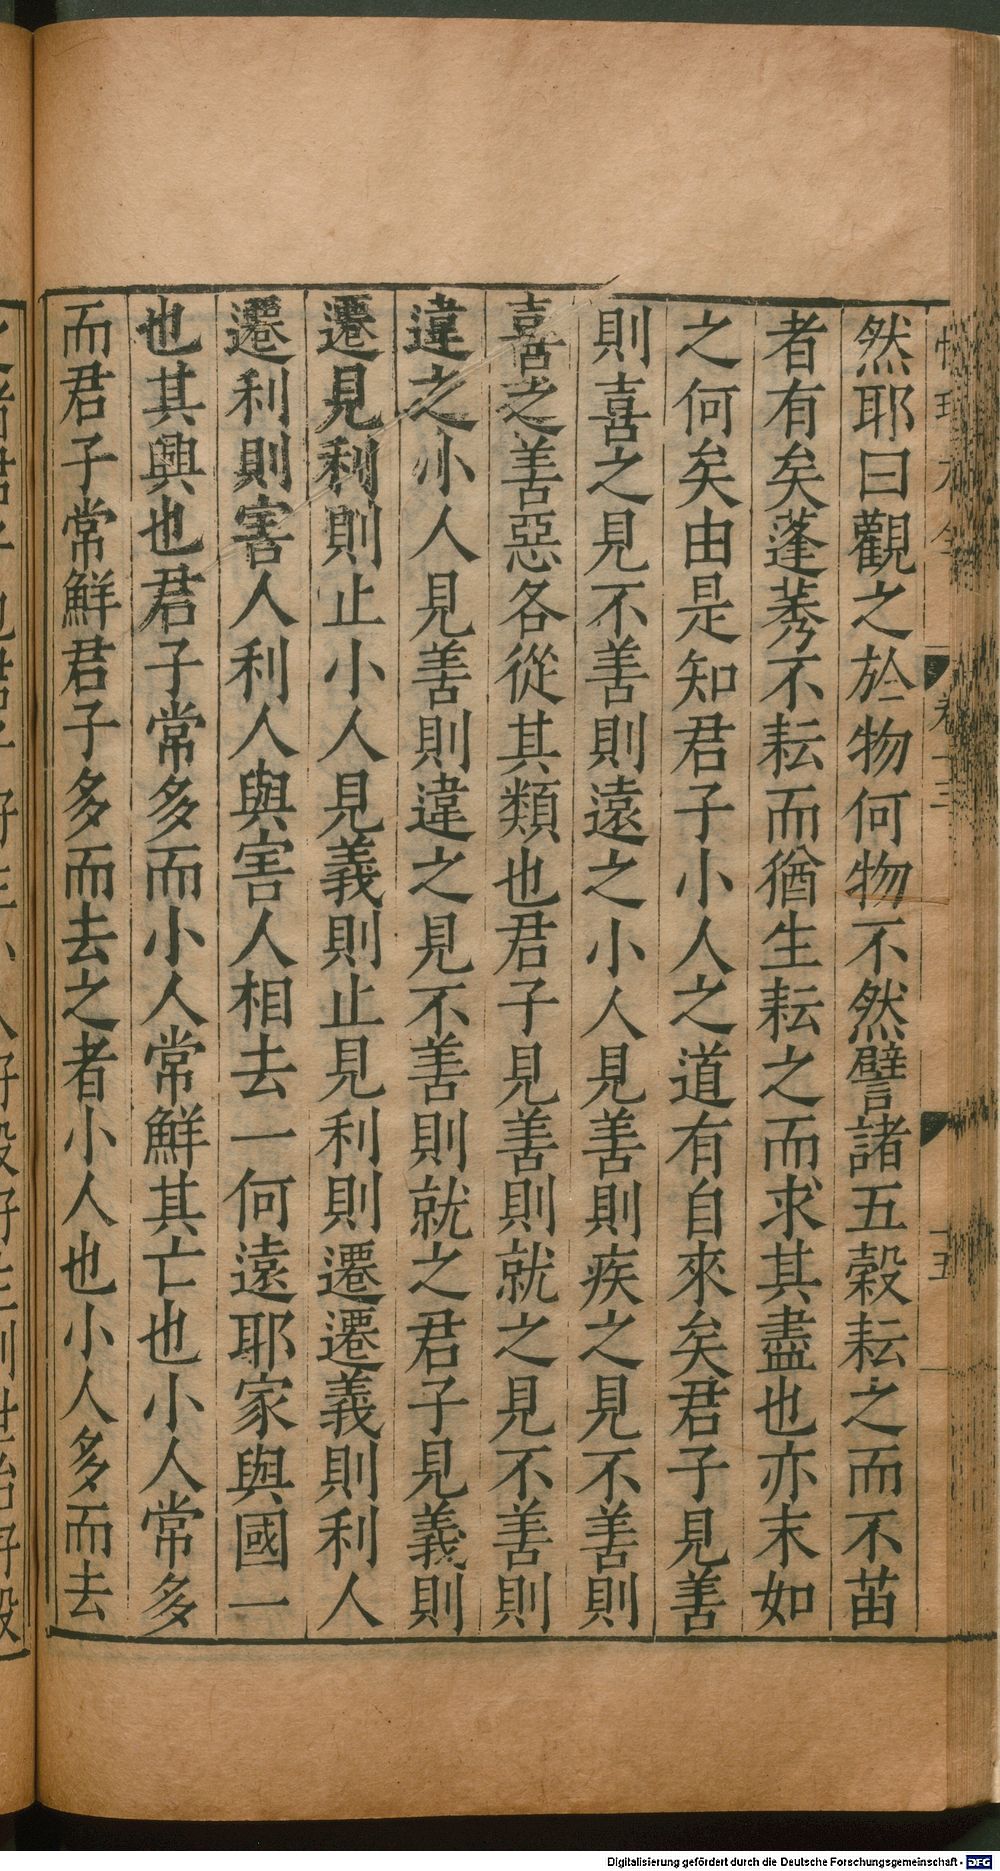 然耶曰觀之於物何物不然譬諸五穀耘之而不苗
者有矣蓬莠不耘而猶生耘之而求其盡也亦末如
之何矣由是知君子小人之道有自來矣君子見善
則喜之見不善則遠之小人見善則疾之見不善則
喜之善惡各從其類也君子見善則就之見不善則
違之小人見善則違之見不善則就之君子見義則
遷見利則止小人見義則止見利則遷遷義則利人
遷利則害人利人與害人相去一何遠耶家與國一
也其興也君子常多而小人常鮮其亡也小人常多
而君子常鮮君子多而去之者小人也小人多而去
卷十三
十五
Digitalisierung gefördert durch die Deutsche Forschungsgemeinschaft - DFG